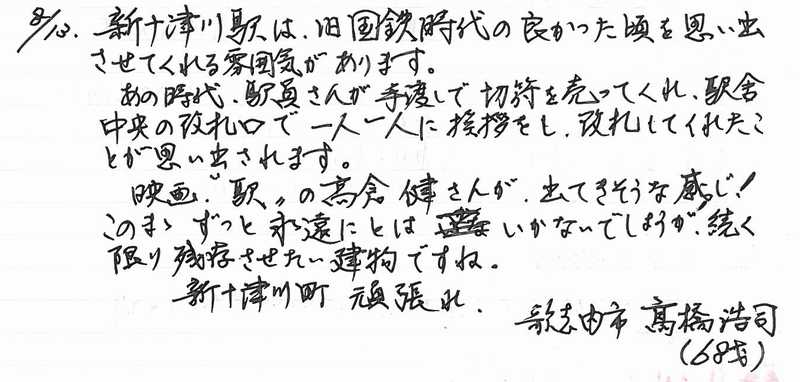 8/13. 新十津川駅は、旧国鉄時代の良かった頃を思い出
させてくれる雰囲気があります。
あの時代、駅員さんが手渡しで切符を売ってくれ、駅舎
中央の改札口で一人一人に挨拶をし、改札してくれたこ
とが思い出されます。
映画〝駅〟の高倉健さんが、出てきそうな感じ!
このまゝずっと永遠にとは いかないでしょうが、続く
限り残存させたい建物ですね。
新十津川町 頑張れ.
歌志内市 髙橋浩司
(68才)